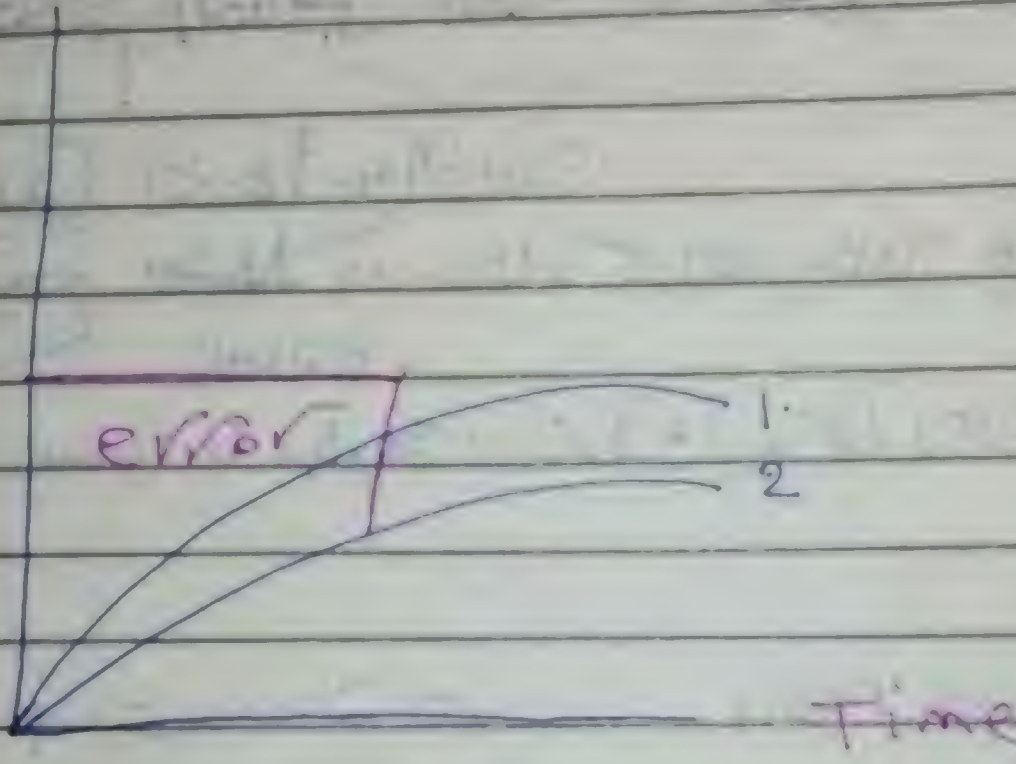 error
1.
2
Time